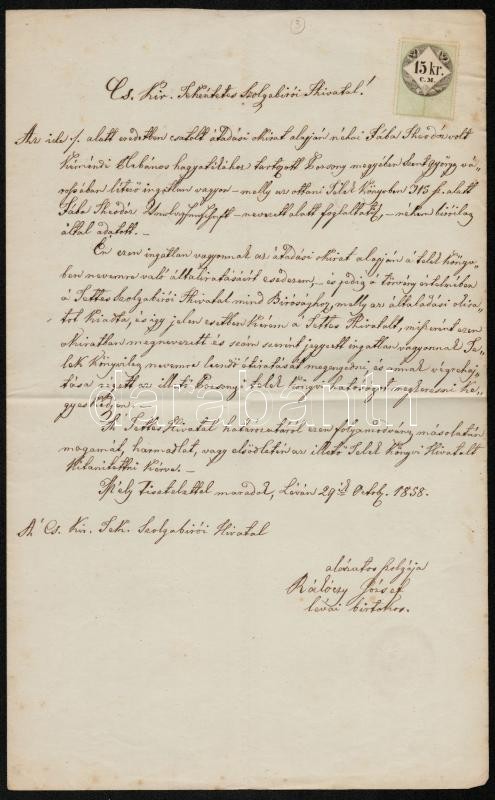 3
15 kr.
C.M.
Cs. Kir. Tekéntetes Szolgabirói Hivatal!
Az ide /. alatt eredetben csatolt átadási okirat alapján néhai Fába Theodór volt
Keméndi Plebános hagyatékához tartozott Posony megyében Szentgyörgy vá-
rosában létező ingatlan vagyon – melly az ottani Telek Könyvben 315 f. alatt
Fába Theodór nevezett alatt foglaltatik, – nékem biróilag
által adatott. –
Én ezen ingatlan vagyonnak az átadási okirat alapján a telek köny-
ben nevemre való általiratásáért esedezem, – és pedig a törvény értelmében
a Tettes Szolgabirói Hivatal mind Birósághoz, melly az általadási okira-
tot kiadta, és így jelen esetben kérem a Tettes Hivatalt, miszerint ezen
okiratban megnevezett és szám szerint jegyzett ingatlan vagyonnak Te-
lek Könyvileg nevemre leendő átiratását megengedni, és annak végrehaj-
tása végett az illető Posonyi telek Könyvi hatóságot megkeresni Ke-
gyeskedjen.
A Tettes Hivatal határozatáról ezen folyamodványi másolatán
magamat, harmadlet, vagy elsőletén az illető Telek Könyvi Hivatalt
Kitanittatni Kérve. –
Mély tisztelettel maradok, Léván 29 Octob. 1858.
A Cs. Kir. Tek. Szolgabirói Hivatal
alázatos szolgája
Rákóczy József
lévai birtokos.
darabanth